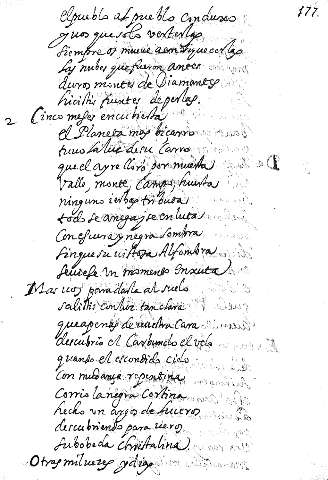 177.
el pueblo al pueblo
y vos que solo verterlas
siempre os mueve a enriquecerlas
las nubes que fueron antes
duros montes de Diamantes
fuentes de perlas.
2 Cinco meses encubierta
el Planeta mas bicarro
tuvo la luz de su carro
que el ayre lloró por muerta
Valle, monte, Campo, huerta
ninguno ierba tributa
todo se anega y se enluta
Con escura y negra sombra
sin que su vistosa Alfombra
se viese un momento enxuta
Mas vos para darla al suelo
salistis con luz tan clara
que apenas de vuestra Cara
descubrio el Carbunclo el velo
quando el escondido cielo
con mudanza repentina
Corrio la negra Cortina
hecho un argos de luceros
descubriendo para veros
su boveda christalina
Otras mil vezes